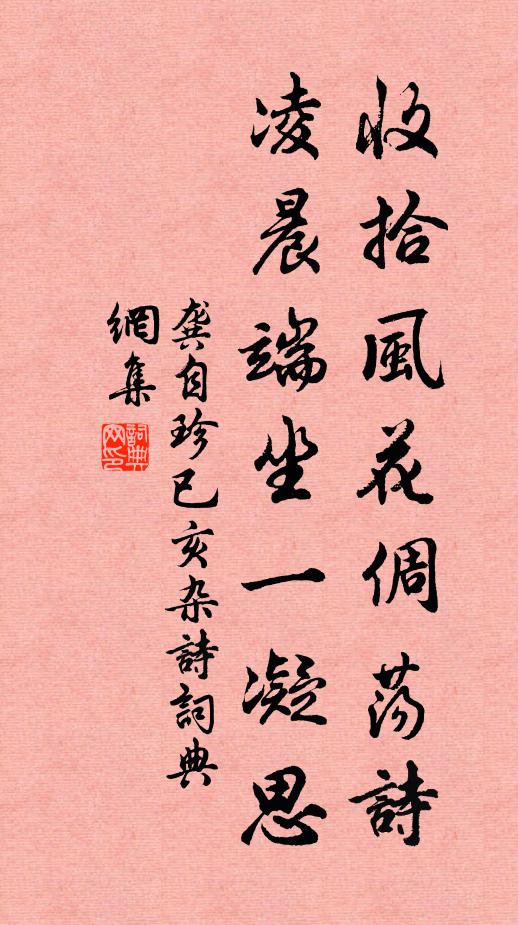 收拾風花倜荡詩
凌晨端坐一凝思
龚自珍已亥杂詩詞典
網集
詞典
网印